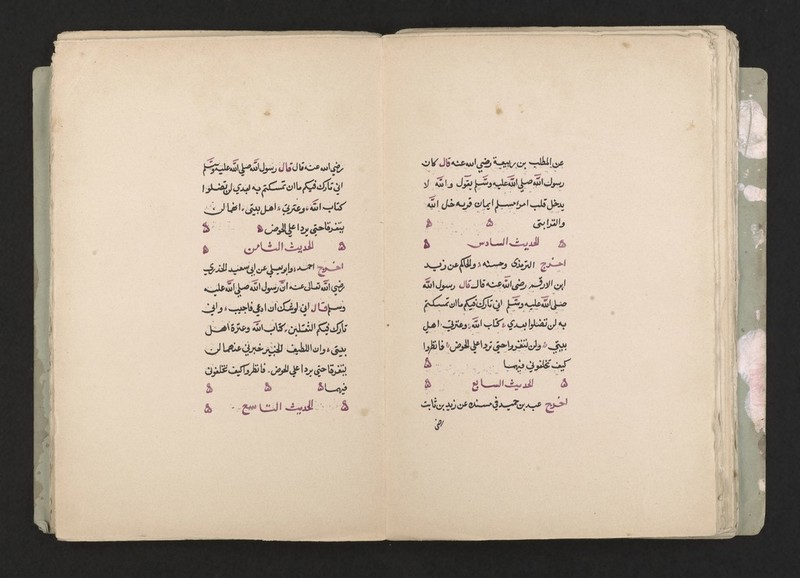 عن المطلب بن ربيعة رضي الله عنه قال كان
رسول الله صلى الله عليه وسلم يقول والله لا
يدخل قلب امرا مسلم ايمان قربه خل الله
والقرابتى
الحديث السادس
اخرج الترمذى وحسنه والحاكم عن زيد
ابن الارقم رضى الله عنه قال قال رسول الله
صلى الله عليه وسلم انى تارك فيكم ما ان تمسكتم
به لن تضلوا بعدي كتاب الله وعترتي اهل
بيتي ولن تتفرقوا حتى تردا على الحوض فانظروا
كيف تخلفونى فيهما
الحديث السابع
اخرج عبد بن حميد فى مسنده عن زيد بن ثابت
رضى
رضي الله عنه قال قال رسول الله صلى الله عليه وسلم
انى تارك فيكم ما ان تمسكتم به بعدى لن تضلوا
كتاب الله وعترتي اهل بيتى وانهما لن
يتفرقا حتى يردا على الحوض
الحديث الثامن
اخرج احمد وابو يعلي عن ابى سعيد الخدرى
رضى الله تعالى عنه ان رسول الله صلى الله عليه
وسلم قال انى اوشك ان ادعى فاجيب وانى
تارك فيكم الثقلين كتاب الله وعترة اهل
بيتى وان اللطيف الخبير خبرنى عنهما لن
يتفرقا حتى يردا على الحوض فانظروا كيف تخلفونى
فيهما
الحديث التاسع